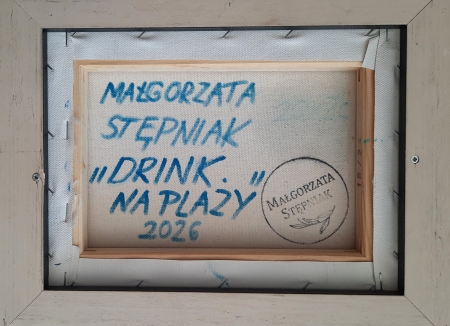 MAŁGORZATA
STĘPNIAK
„DRINK. „
NA PLAZY
2026
MAŁGORZATA
STĘPNIAK